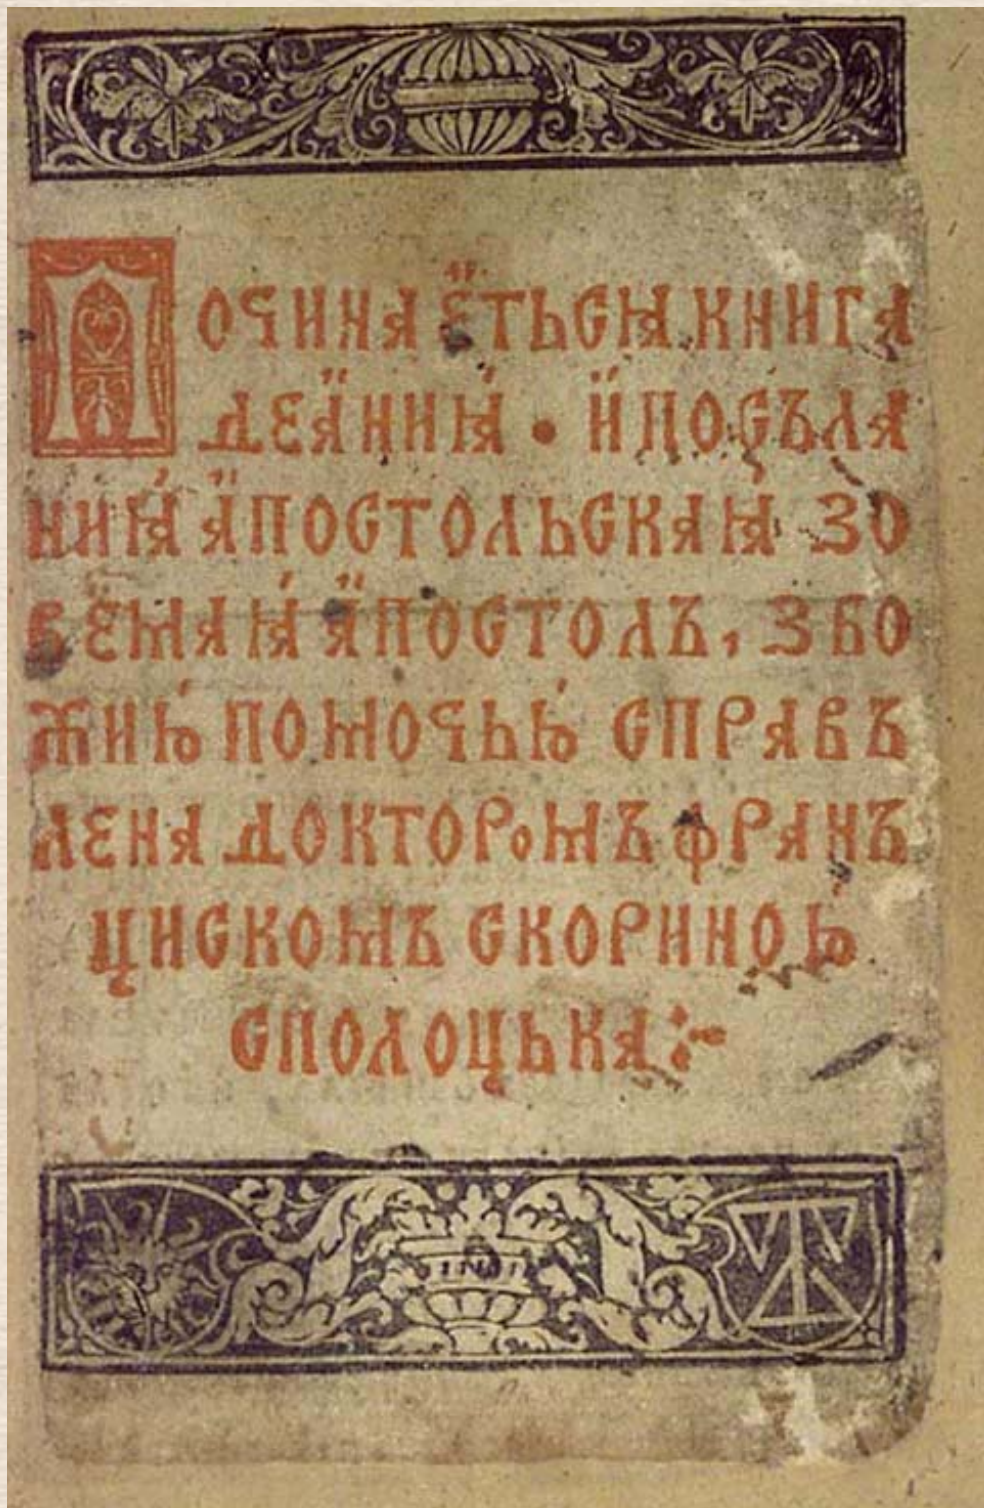 ПОЧИНАЕ҃ТЬСѦ КНИГА
ДЕꙗНИꙗ • И ПОСЪЛА
НИꙗ АПОСТОЛЬСКАꙗ ЗО
ВЕМАꙗ АПОСТОЛЪ, З БО
ЖИЮ ПОМОЧЬЮ СПРАВЪ
ЛЕНА ДОКТОРОМЪ ФРАНЪ
ЦИСКОМЪ СКОРИНОЮ
СПОЛОЦЬКА :~